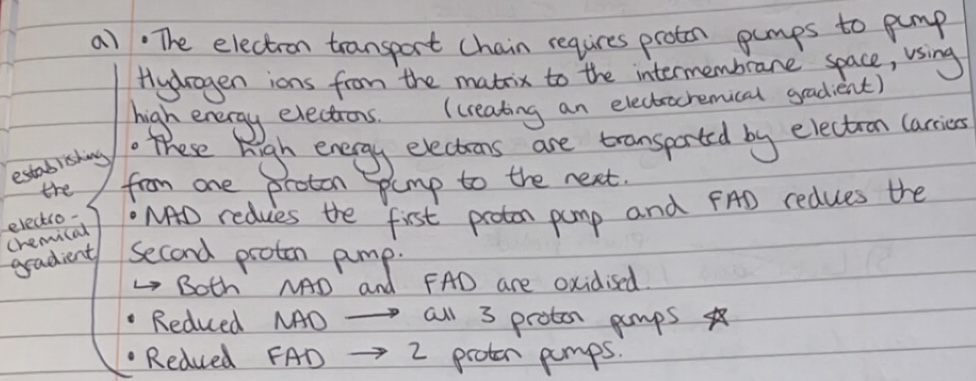 a) • The electron transport chain requires proton pumps to pump
Hydrogen ions from the matrix to the intermembrane space, using
high energy electrons. (creating an electrochemical gradient)
• These high energy electrons are transported by electron carriers
from one proton pump to the next.
• NAD reduces the first proton pump and FAD reduces the
second proton pump.
↳ Both NAD and FAD are oxidised.
• Reduced NAD → all 3 proton pumps ☆
• Reduced FAD → 2 proton pumps.
establishing
the
electro-
chemical
gradient